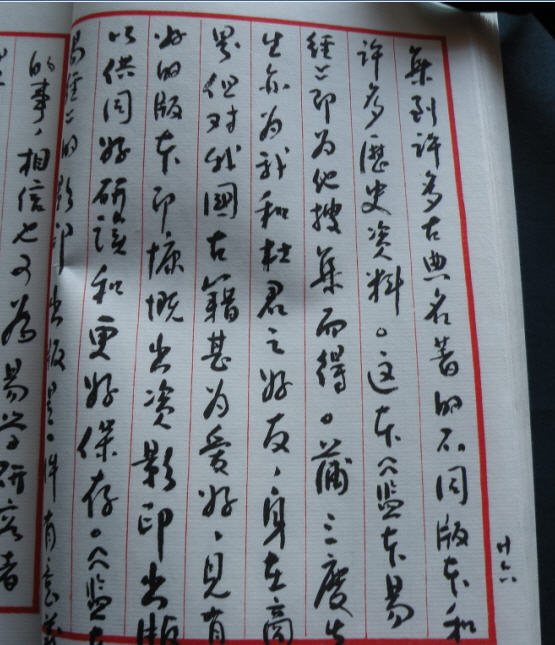 集到许多古典名著的不同版本和
许多歷史资料。这本《监本易
经》即为他搜集而得。蒲三度先
生亦为我和杜君之好友，身在商
界但对我國古籍甚为爱好，见有
好的版本即慷慨出资影印出版
以供同好研读和更好保存。《监本
易经》的影印出版是一件有意义
的事，相信也可为易学研究者
廿六